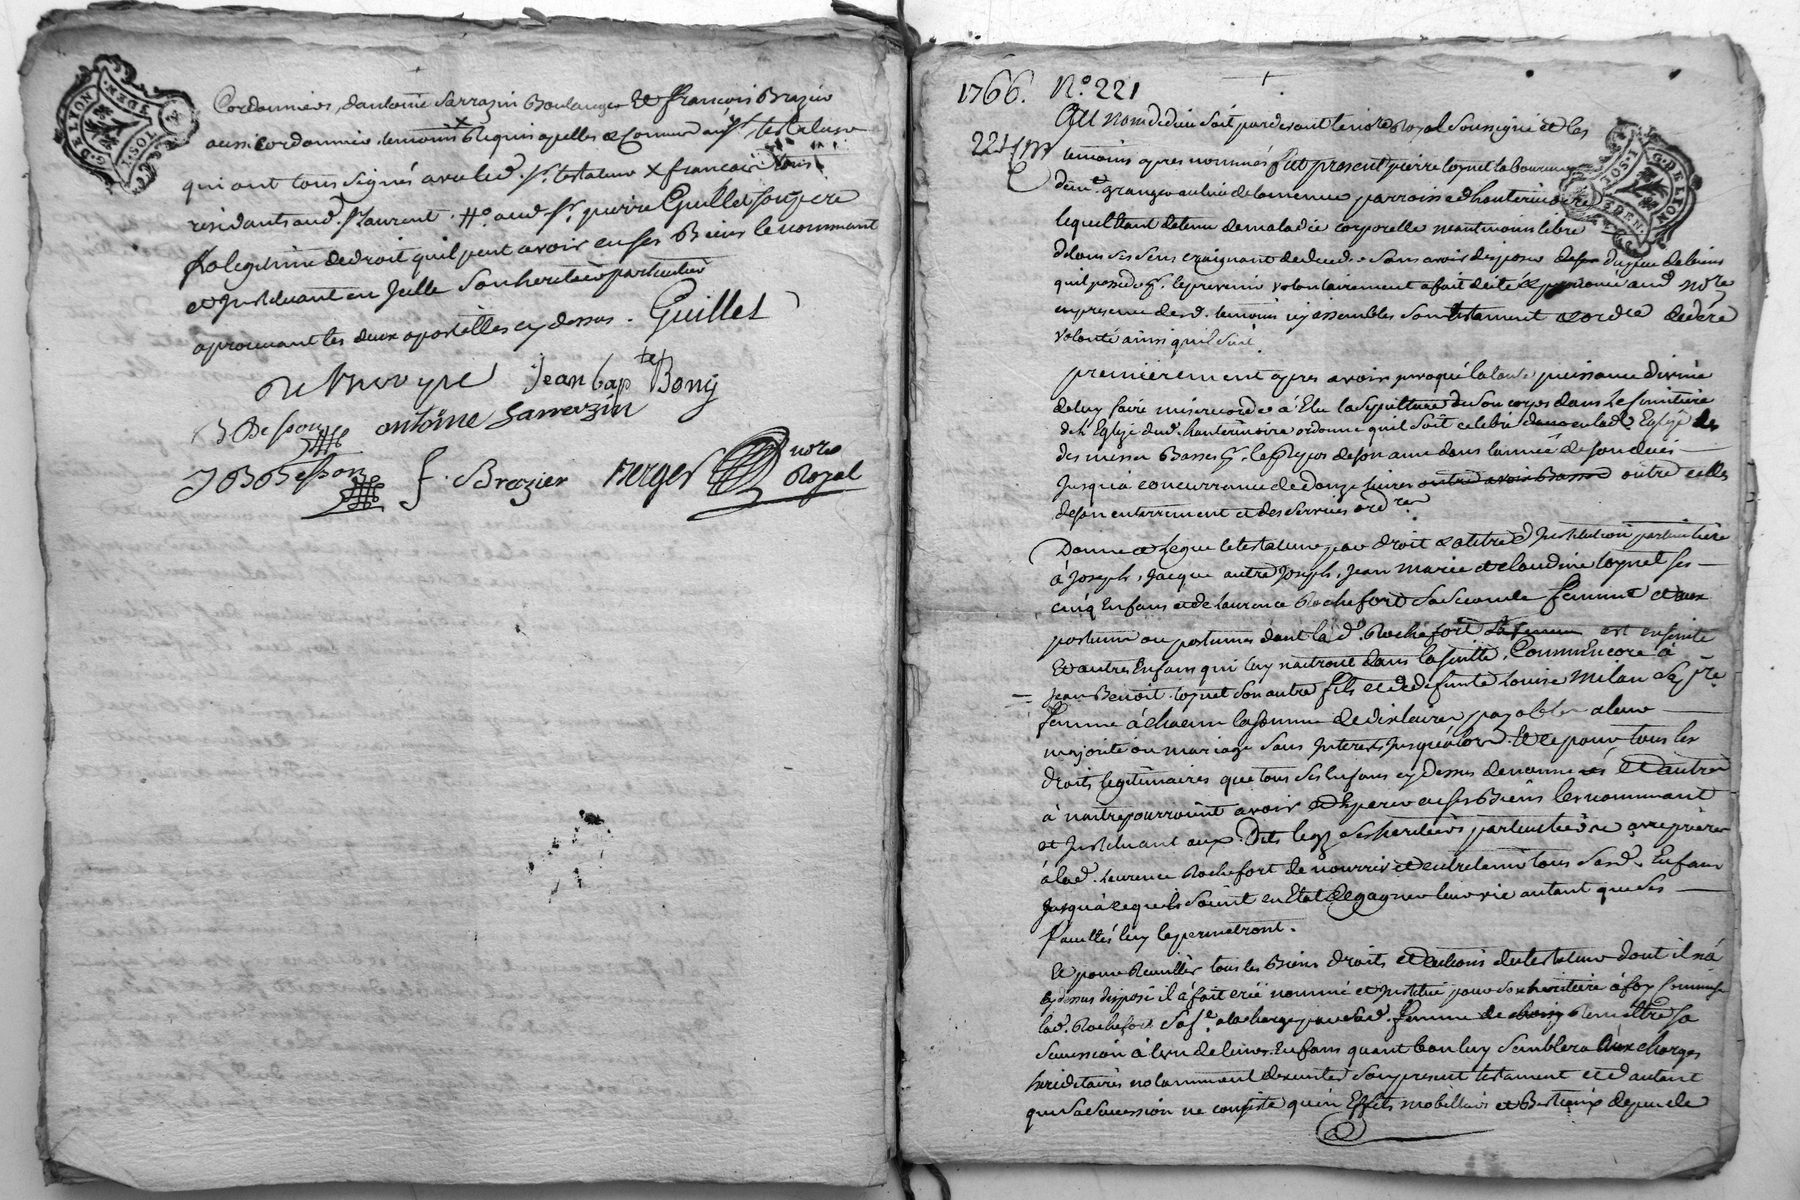 G. DE LYON
1 SOL. 2 DEN.
Cordonniers, dantoine Sarrazin Boulanger Et françois Brazier
aussi Cordonnier temoins Requis apellés & Connus aud. Sr. testateur
qui ont tous signés avec led. Sr. testateur x françois tous
residants aud. St. Laurent. # aud. Sr. pierre Guillet son pere
sa legitime de droit quil peut avoir en ses Biens le nommant
et Instituant en Icelle son heritier particulier
aprouvant les deux apostilles cy dessus. Guillet
Jean bapte Bony
B Besson antoine Sarrazin
J B Besson f. Brazier Berger nore
Royal
1766. No. 221
Au Nom de dieu soit pardevant le nore Royal soussigné et les
temoins apres nommés fut present pierre loynet laboureur
parroisse dhauterivoire
lequel Etant detenu de maladie corporelle neantmoins libre
de tous ses sens craignant de deceder sans avoir disposé du peu de biens
quil possede pr. le prevenir volontairement a fait dicté & prononcé aud. nore
en presence desd. temoins cy assemblés son testament & ordce de dere
volonté ainsi quil suit.
premierement apres avoir invoqué la toute puissance divine
de luy faire misericorde à Elu la sepulture de son corps dans le simitiere
de l'Eglize dud. hauterivoire ordonne quil soit celebré dans lad. Eglize
des messes Basses pr. le Repos de son ame dans lannée de son deces
jusqua concurrance de douze livres outre celles
de son enterrement et des services ordres
Donne & legue le testateur par droit & a titre d'Institution particuliere
à Joseph, Jacque autre Joseph, Jean Marie et claudine loynet ses
cinq Enfans et de laurence Rochefort sa seconde femme et aux
postume ou postumes dont lad. Rochefort est enseinte
Et autres Enfans qui luy naitront dans la suitte, Comm'Encore à
Jean Benoit loynet son autre fils et de defunte Louise Milan sa pre
femme à chacun la somme de dix livres payables a leur
majorité ou mariage sans Interests jusqu'alors. Et ce pour tous les
droits legitimaires que tous ses Enfans cy dessus denommés et autres
à naitre pourroint avoir & Esperer en ses Biens les nommant
et Instituant aux Dits legs ses heritiers particuliers
à lad. laurence Rochefort de nourrir et entretenir tous sesd. Enfans
jusqu'à ce quels soint en Etat de gagner leur vie autant que ses
facultés luy le permetront.
Et pour Recueillir tous les Biens droits et actions du testateur dont il n'a
cy dessus disposé il a fait creé nommé et Institué pour son heritiere
lad. Rochefort sa fe. a la charge par sad. femme de Remettre sa
succession à l'un de leurs Enfans quant bon luy semblera Aux charges
hereditaires notamment dexecuter son present testament et d'autant
que sa succession ne consiste quen Effets mobilliers et Bestiaux de peu de